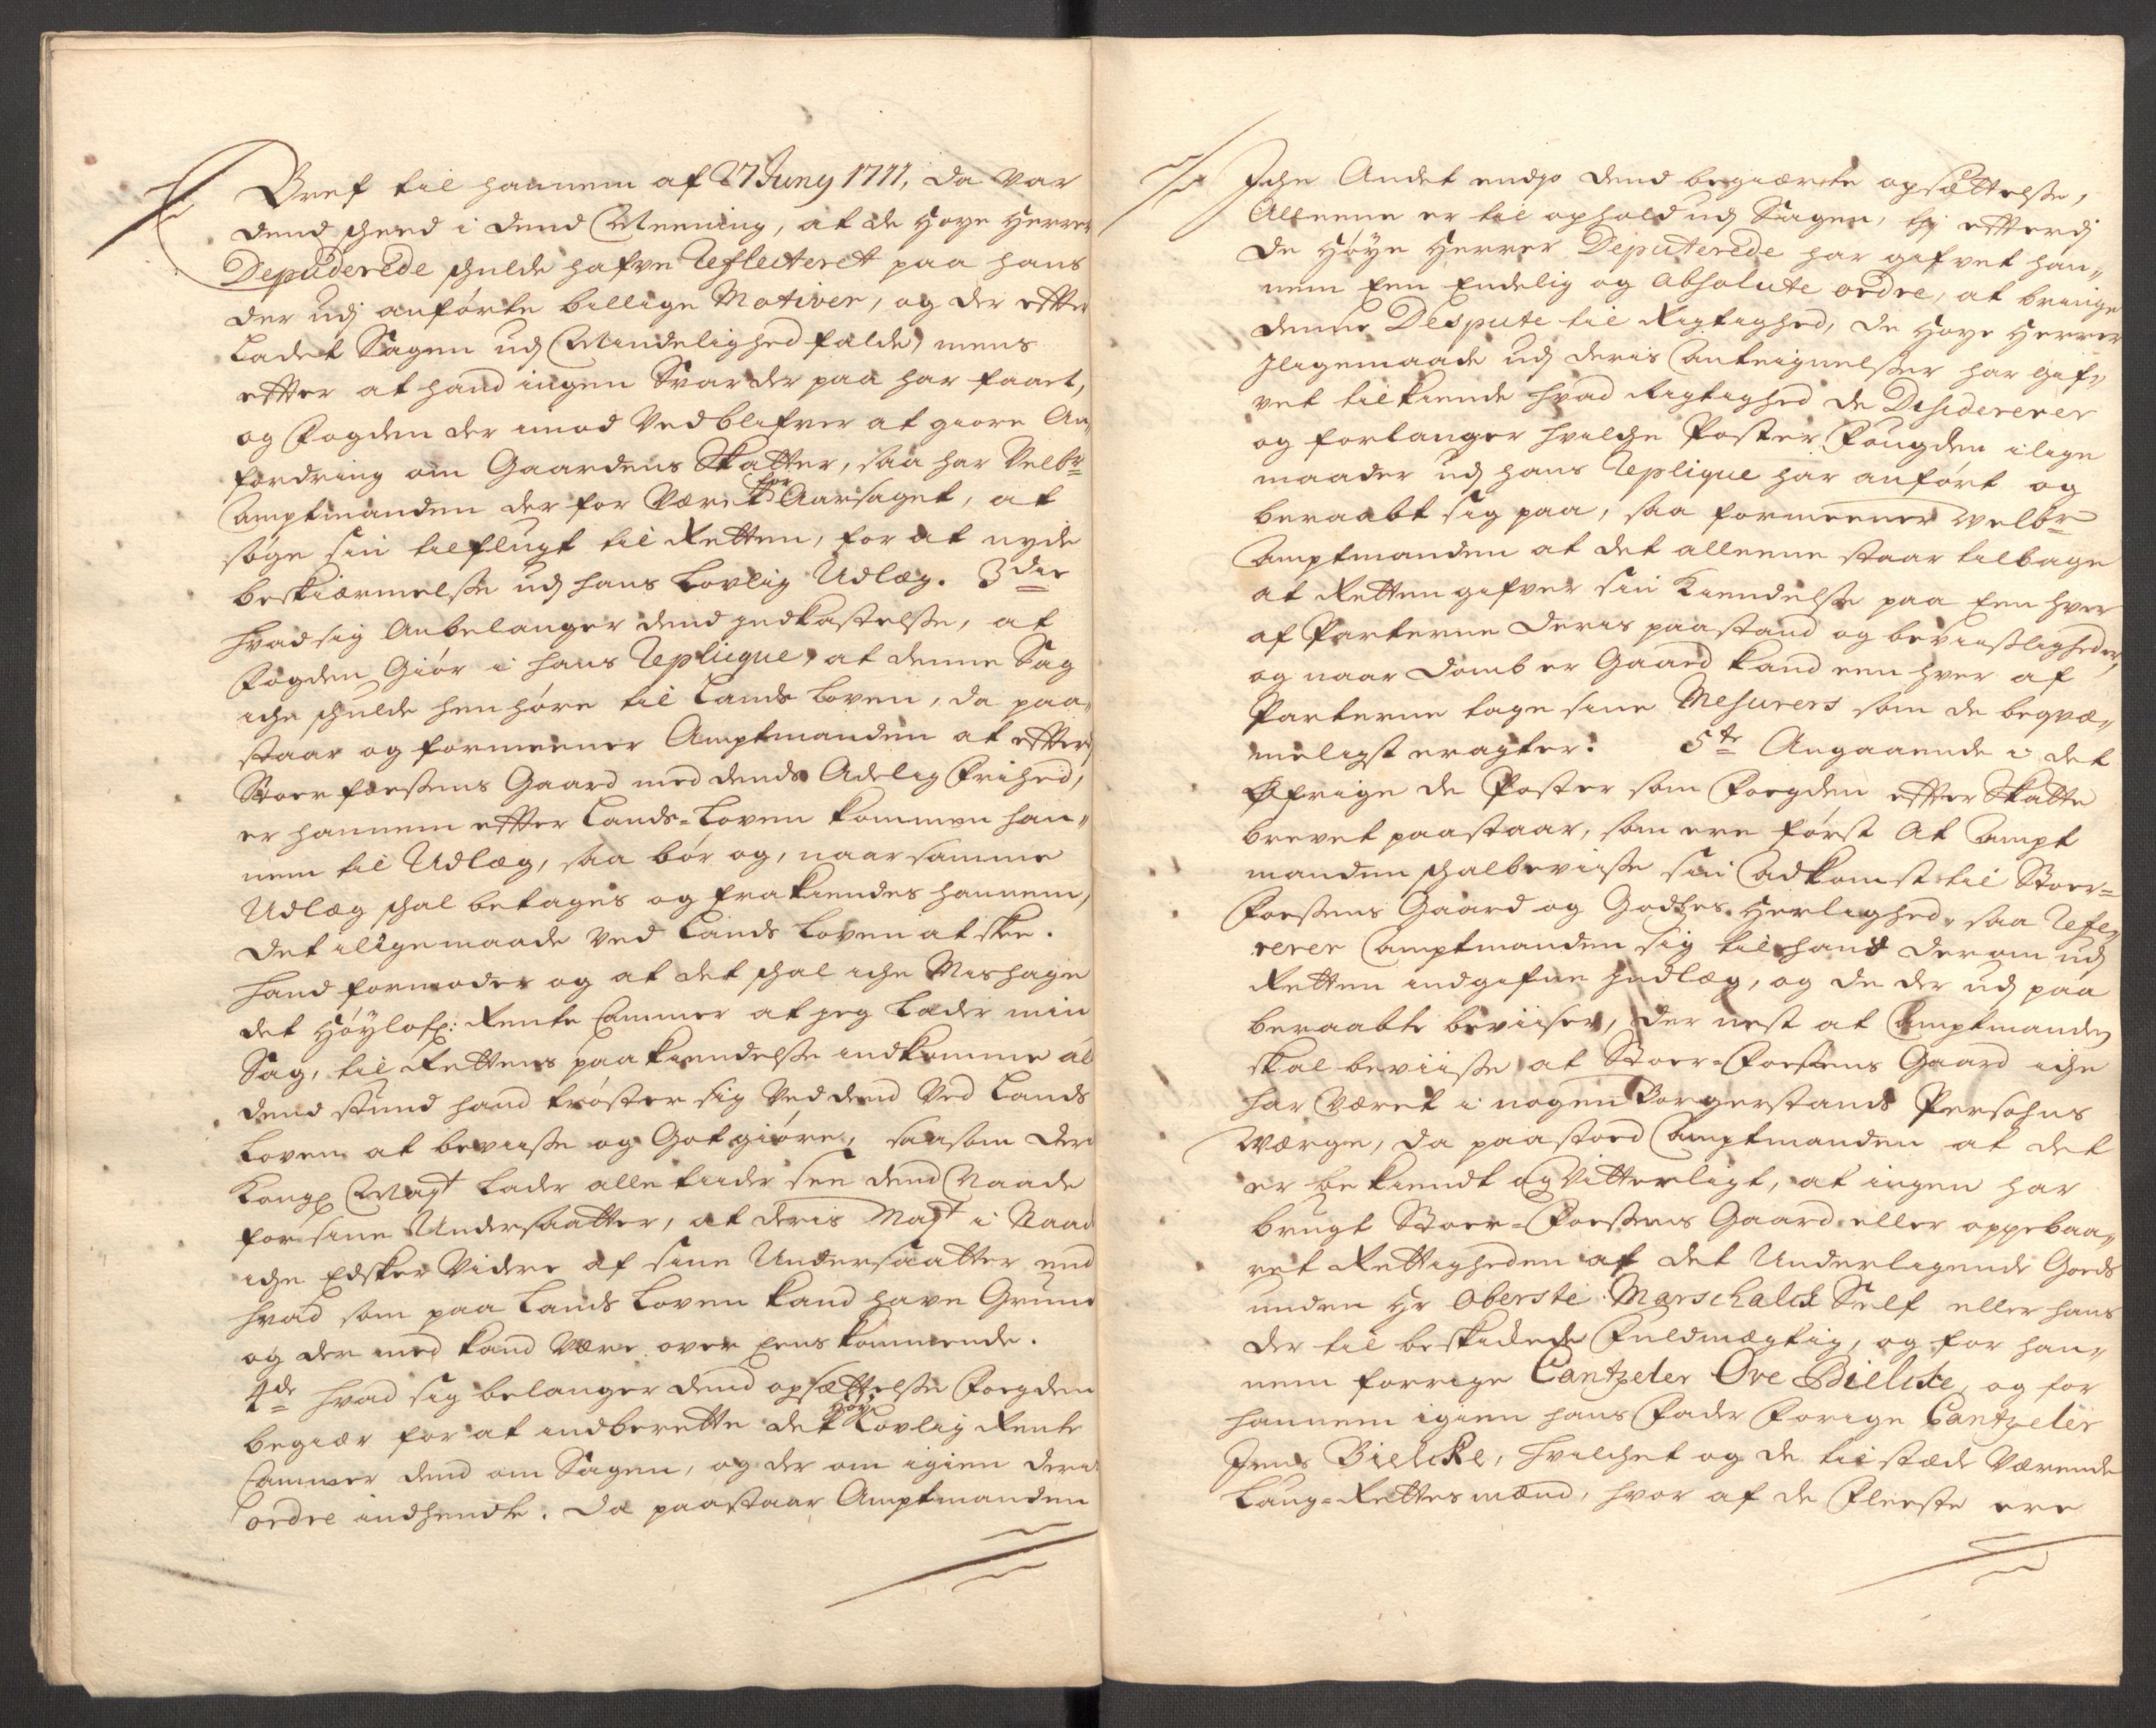 Bref til hannem af 27 Juny 1711, da var
dend skeed i dend Meening, at de Høye Herrer
Depuderede skulde hafve Reflecteret paa hans
der udj anførte billige Motiver, og der efter
ladet Sagen udj Mindelighed falde, mens
efter at hand ingen Svar der paa har faaet,
og Fogden der imod ved blifver at giøre An„
fordring om Gaardens Skatter, saa har Velbr
Amptmanden der for været for Aarsaget, at
søge sin tilflugt til Retten, for at nyde
beskiærmelse udj hans Lovlig Udlæg. 3die
hvad sig Anbelanger dend indkastelse, at
Fogden Giør i hans Replicque, at denne Sag
iche skulde hen høre til Lands Loven, da paa„
staar og formeener Amptmanden at efterdj
Stoer Foessens Gaard med dends Adelig Frihed,
er hannem efter Lands-Loven kommen han„
nem til Udlæg, saa bør og, naar samme
Udlæg skal betages og frakiendes hannem,
det iligemaade ved Lands Loven at skee.
Hand formoder og at det skal iche Mishage
det Høylofl: Rente Cammer at jeg lader min
Sag, til Rettens paakiendelse indkomme al
dend stund hand trøster sig ved dend ved Lands
Loven at beviisse og Got giøre, saasom Deris
Kongl Mayt lader alle tiider see dend Naade
for sine Undersaatter, at deris Mayt i Naade
iche Edsker videre af sine Undersaatter end
hvad som paa Lands Loven kand have Grund
og der med kand være over Eens kommende.
4de hvad sig belanger dend opsættelse Foegden
begiær for at indberette det Høy Lovlig Rente
Cammer dend om Sagen, og der om igien deris
ordre indhendte. Da paastaar Amptmanden
Iche Andet endjo dend begiærte opsættelse,
Alleene er til ophold udj Sagen, thj efterdj
de Høye Herrer Deputerede har gifvet han„
nem Een Endelig og absolute ordre, at bringe
denne Despute til Rigtighed, de Høye Herrer
Iligemaade udj deris Anteignelser har gif„
vet tilkiende hvad Rigtighed de Desidererer
og forlanger hvilche Poster Fougden ilige
maader udj hans Replique har anført og
beraabt sig paa, saa formeener Welbr
Amptmanden at det alleene staar tilbage
at Retten gifver sin Kiendelse paa Een hver
af Parterne deris paastand og beviisligheder,
og naar domb er Gaard kand een hver af
Parterne tage sine Mesurers som de beqvæ„
meligst eragter. 5te Angaaende i det
Øfrige de Poster som Foegden efter Skatte
brevet paastaar, som ere først At Ampt
manden skal beviisse sin Adkomst til Stoer-
Foessens Gaard og Godses Herlighed, saa Refe„
rerer Amptmanden sig til hans derom udj
Retten indgifne Indlæg, og de der udj paa
beraabte beviiser, der nest at Amptmanden
skal beviisse at Stoer-Foessens Gaard iche
har været i nogen Borgerstands Persohns
Wærge, da paastoed Amptmanden at det
er bekiendt og Vitterligt, at ingen har
brugt Stoer-Foessens Gaard eller oppebaa„
ret Rettigheden af det Underligende Goeds
unden Hr Oberste Marschalck Self eller hans
der til beskickede Fuldmægtig, og for han„
nem forrige Cantzeler Ove Bielcke, og for
hannem igien hans Fader Forige Cantzeler
Jens Bielcke, hvilchet og de tilstæde Værende
Laug-Rettesmænd, hvor af de Fleeste ere